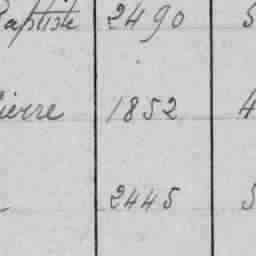 Baptiste 2490 5
Pierre 1852 4
2445 5